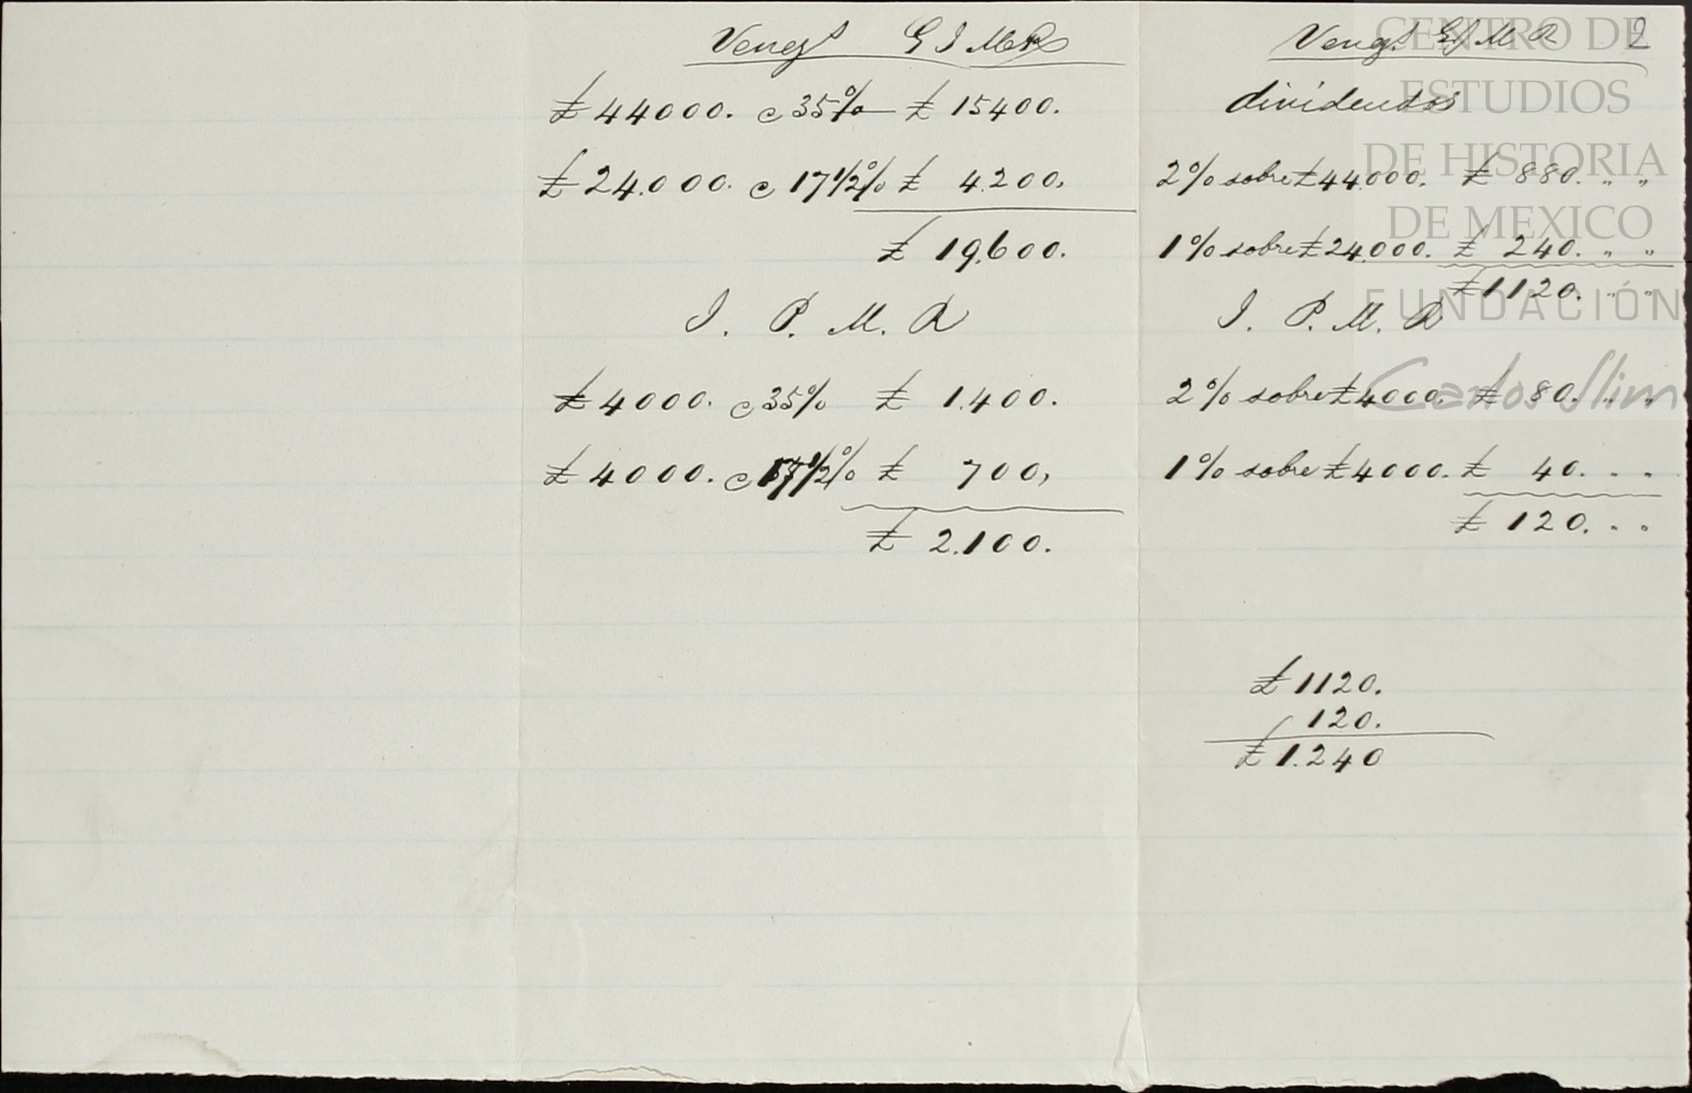 G I M R
£ 44000. c 35% £ 15400.
£ 24.000. c 17 1/2% £ 4.200,
£ 19.600.
I. P. M. R
£ 4000. c 35% £ 1.400.
£ 4000. c 17 1/2% £ 700,
£ 2.100.
dividendos
2% sobre £ 44.000. £ 880. " "
1% sobre £ 24.000. £ 240. " "
£ 1120. " "
I. P. M. R
2% sobre £ 4000. £ 80. " "
1% sobre £ 4000. £ 40. " "
£ 120. " "
£ 1120.
120.
£ 1.240
CENTRO DE
ESTUDIOS
DE HISTORIA
DE MEXICO
FUNDACIÓN
Carlos Slim